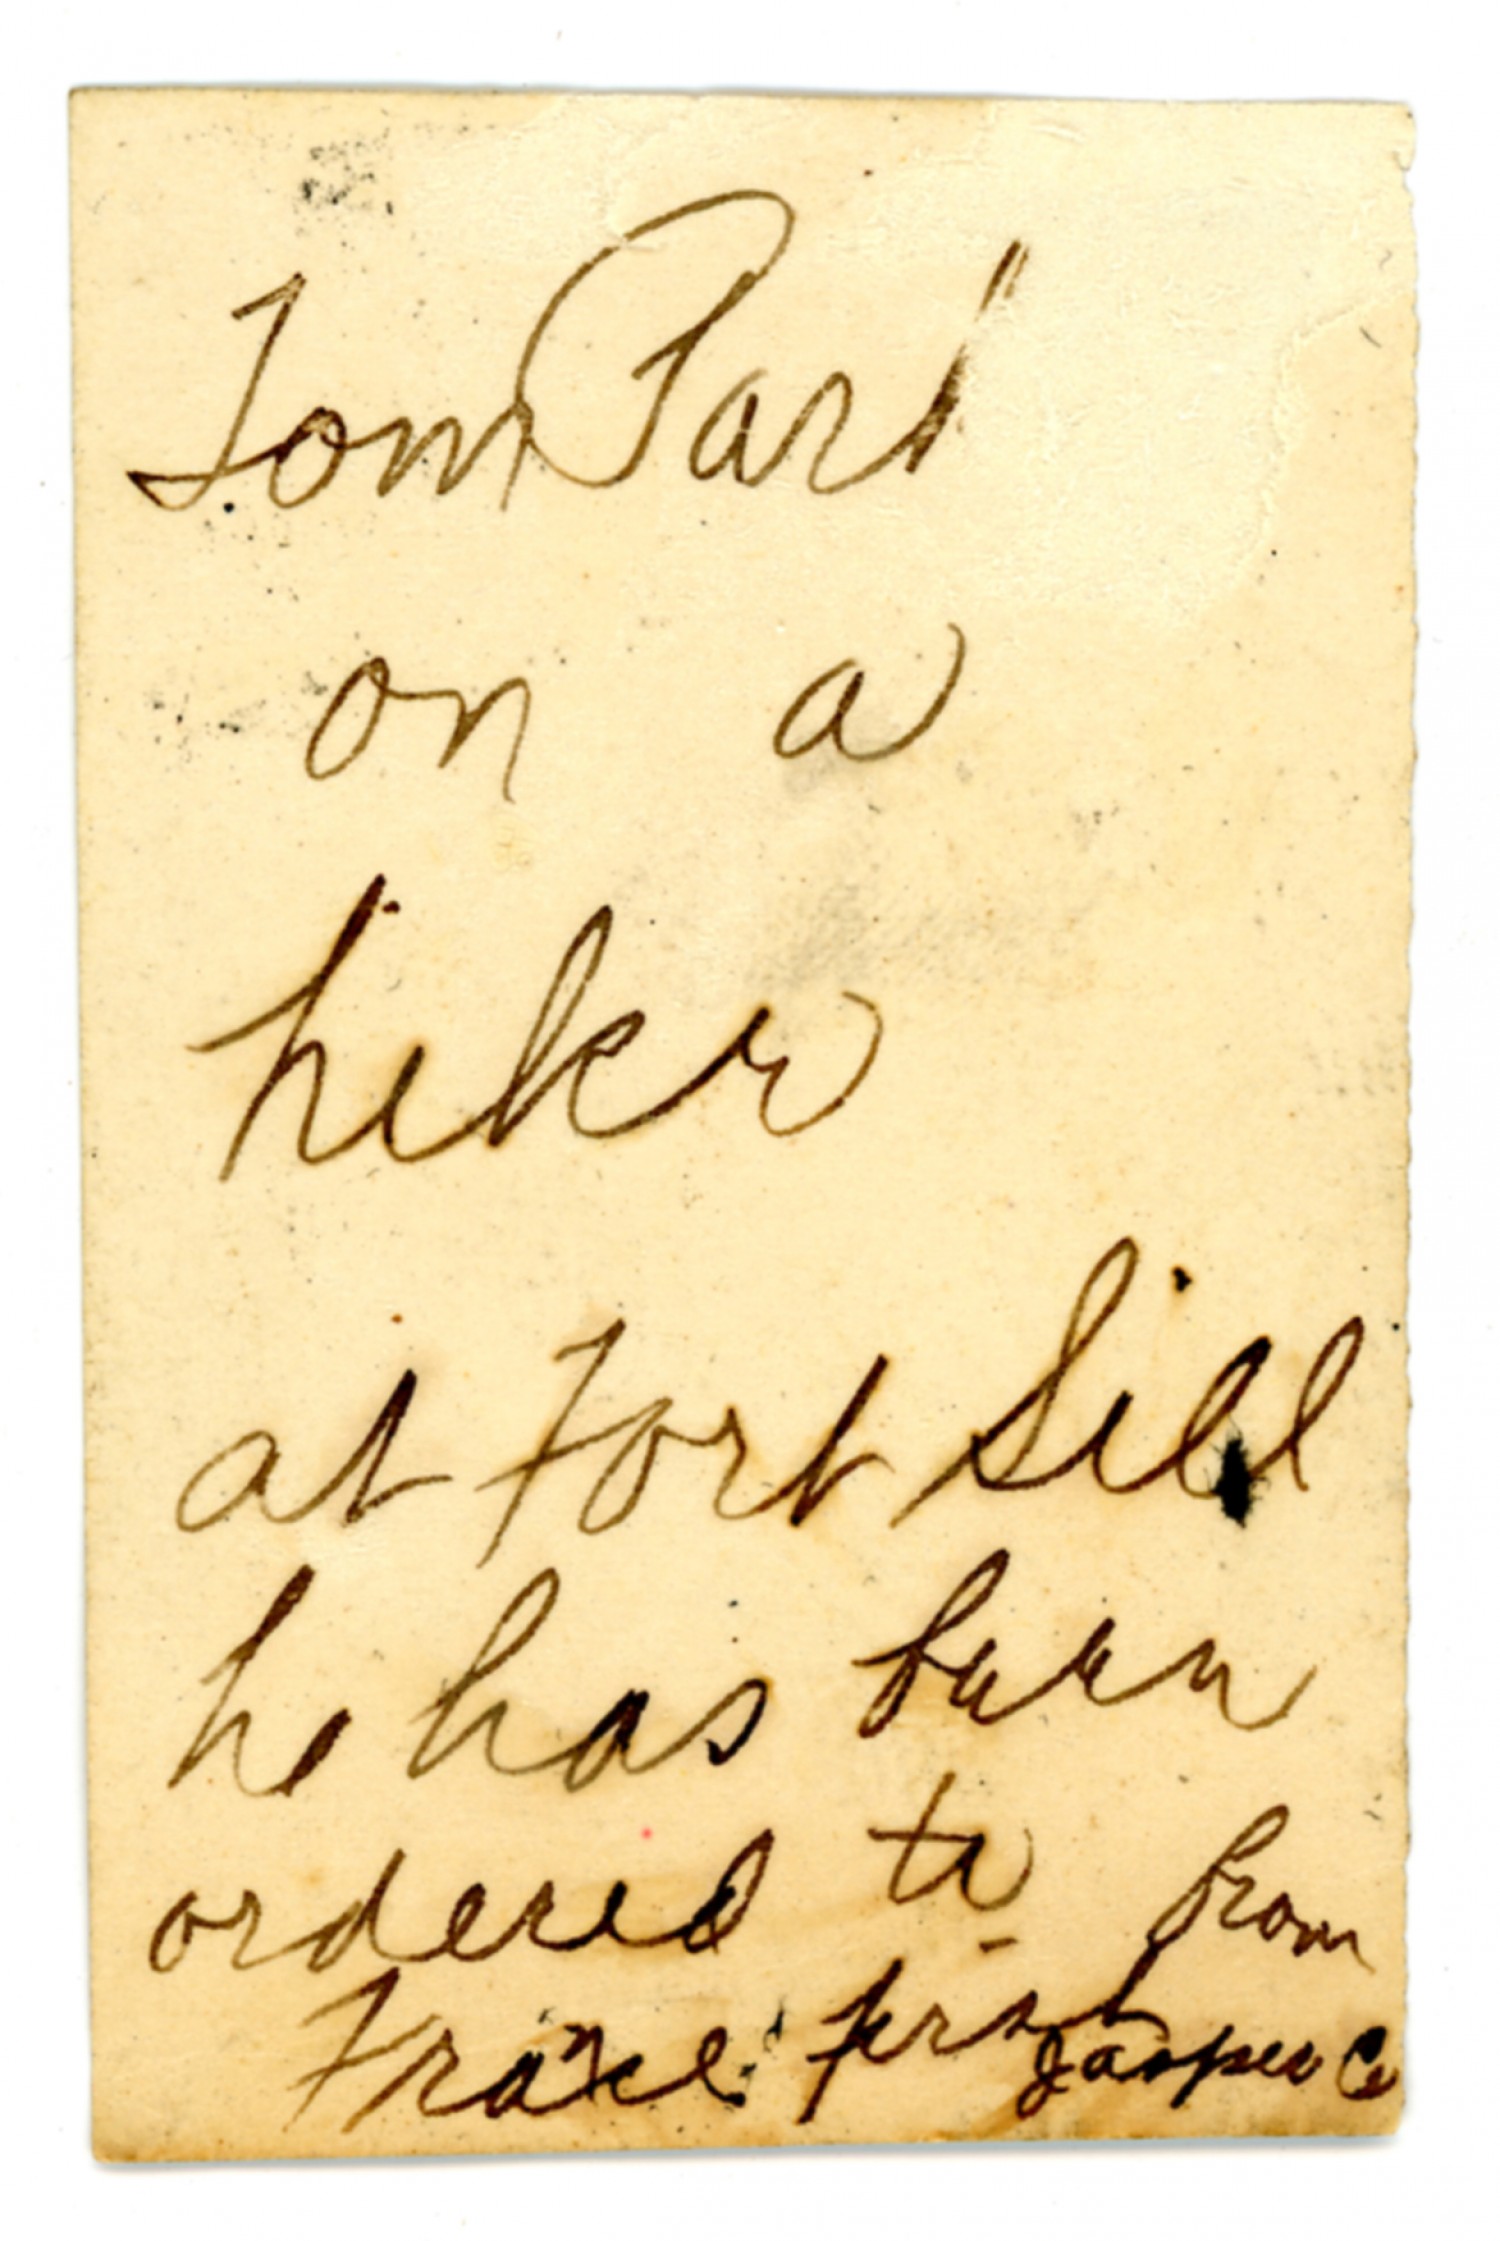 Tom Park
on a
hike
at Fort Sill
he has been
ordered to
France first from
Jasper Co